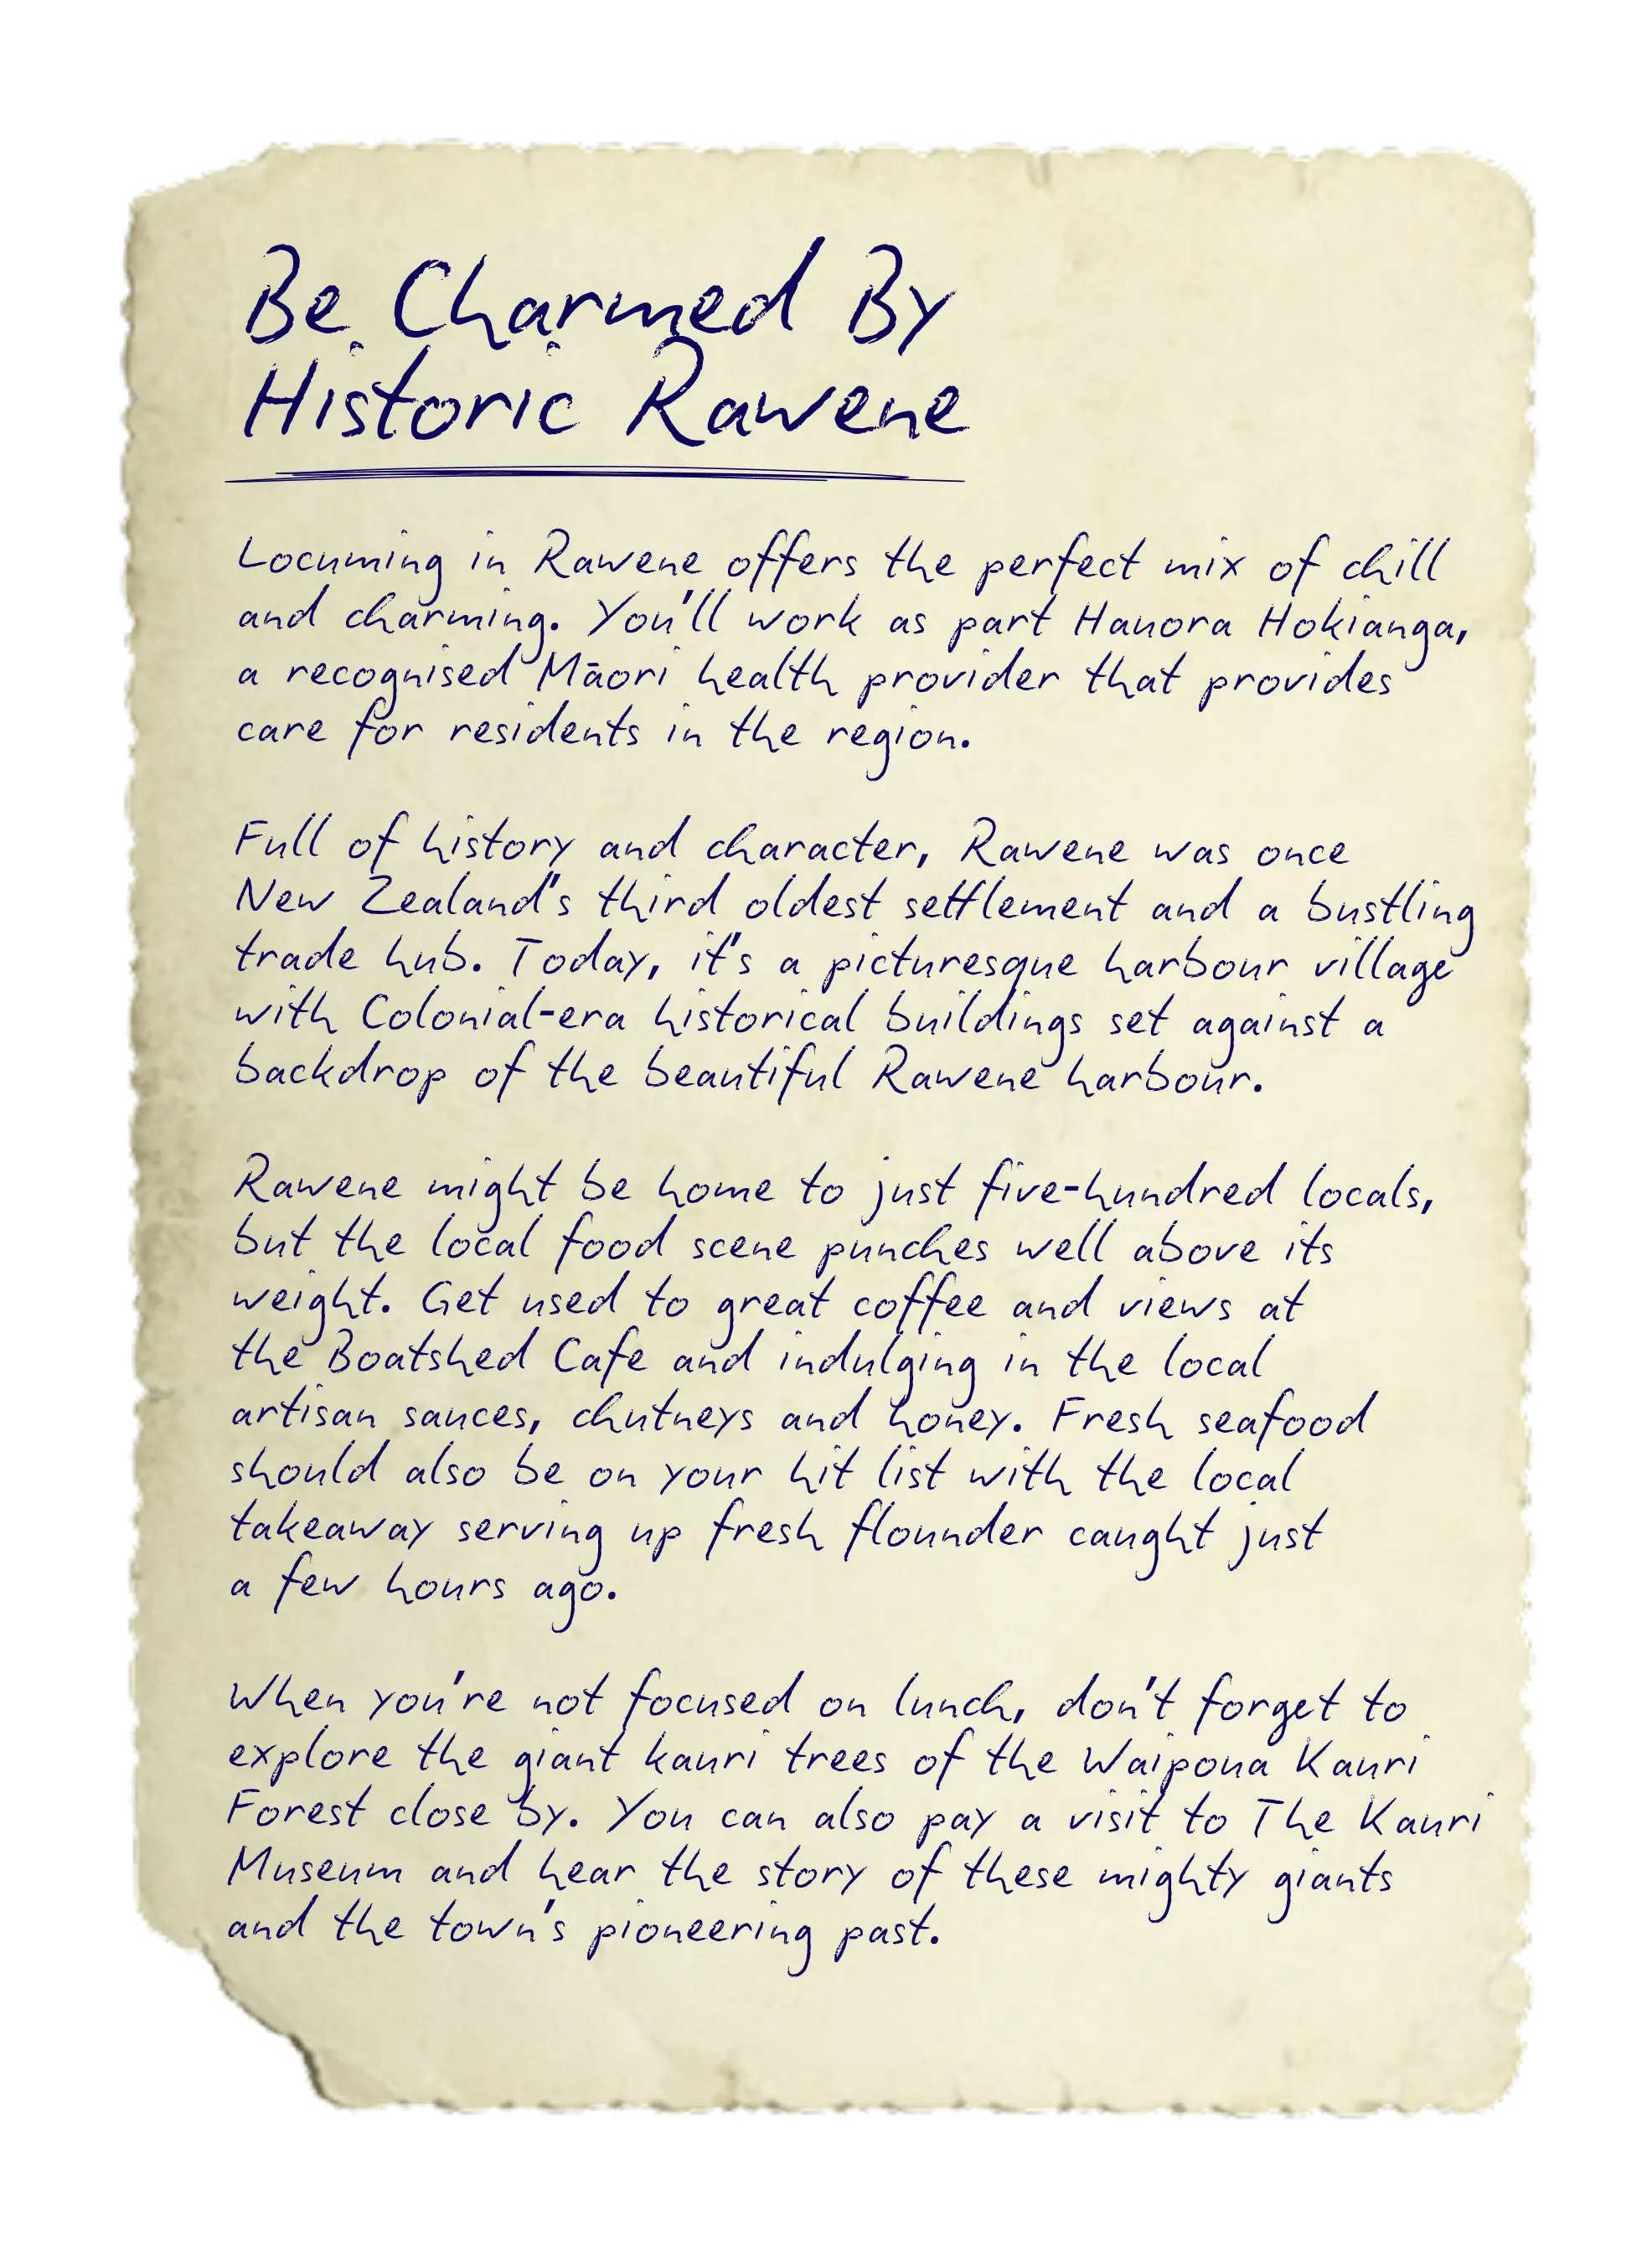 Be Charmed By
Historic Rawene
Locuming in Rawene offers the perfect mix of chill
and charming. You'll work as part Hauora Hokianga,
a recognised Māori health provider that provides
care for residents in the region.
Full of history and character, Rawene was once
New Zealand's third oldest settlement and a bustling
trade hub. Today, it's a picturesque harbour village
with Colonial-era historical buildings set against a
backdrop of the beautiful Rawene harbour.
Rawene might be home to just five-hundred locals,
but the local food scene punches well above its
weight. Get used to great coffee and views at
the Boatshed Cafe and indulging in the local
artisan sauces, chutneys and honey. Fresh seafood
should also be on your hit list with the local
takeaway serving up fresh flounder caught just
a few hours ago.
When you're not focused on lunch, don't forget to
explore the giant kauri trees of the Waipoua Kauri
Forest close by. You can also pay a visit to The Kauri
Museum and hear the story of these mighty giants
and the town's pioneering past.